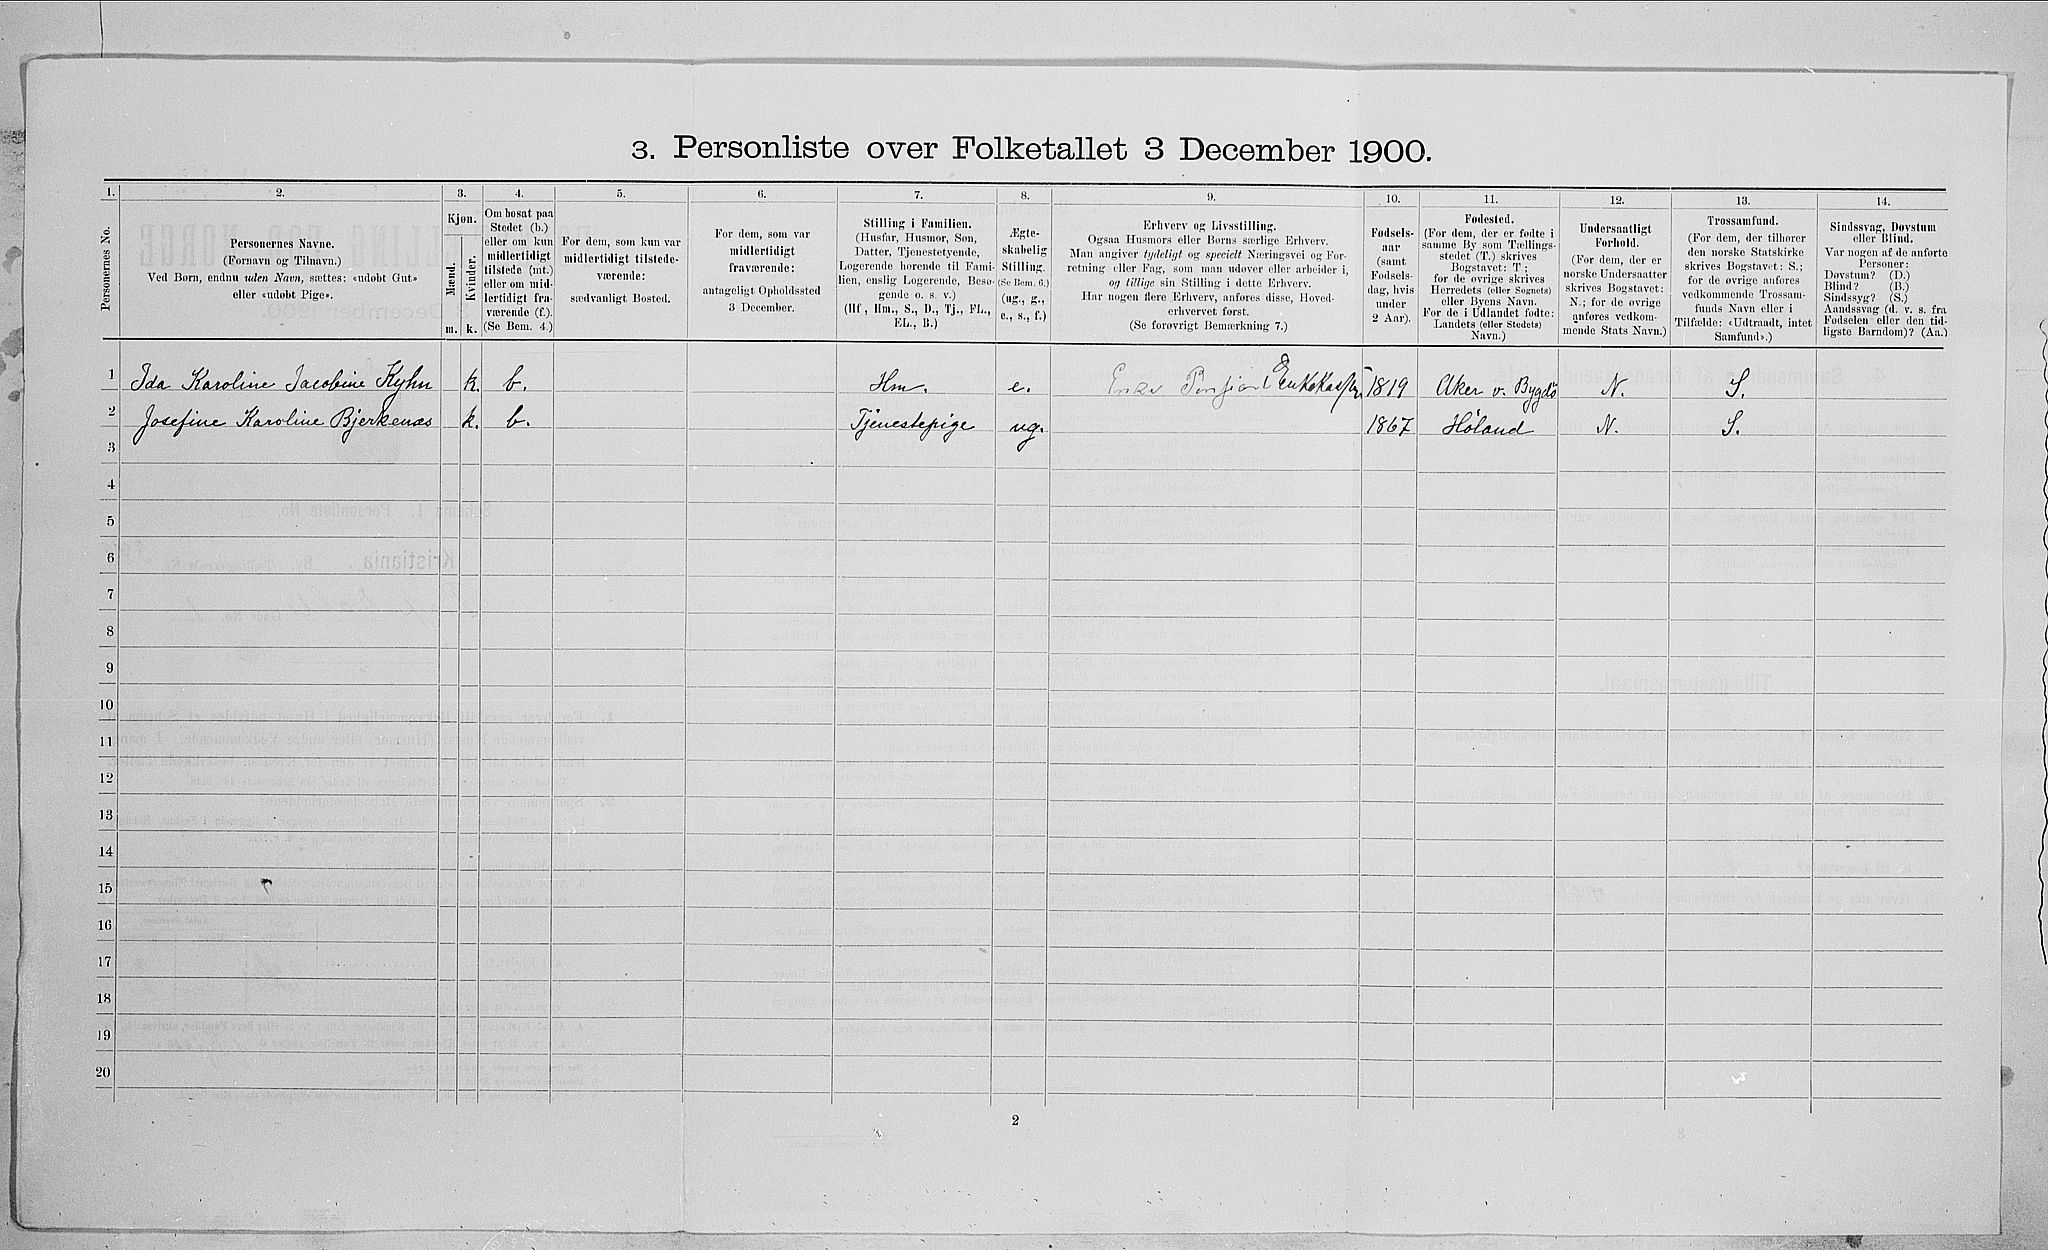 3. Personliste over Folketallet 3 December 1900.
1. 2. 3. 4. 5. 6. 7. 8. 9. 10. 11. 12. 13. 14.
Personernes No.
Personernes Navne.
(Fornavn og Tilnavn.)
Ved Børn, endnu uden Navn, sættes: «udøbt Gut»
eller «udøbt Pige».
Kjøn.
Mænd.
Kvinder.
m. k.
Om bosat paa
Stedet (b.)
eller om kun
midlertidigt
tilstede (mt.)
eller om mid-
lertidigt fra-
værende (f.).
(Se Bem. 4.)
For dem, som kun var
midlertidigt tilstede-
værende:
sædvanligt Bosted.
For dem, som var
midlertidigt
fraværende:
antageligt Opholdssted
3 December.
Stilling i Familien.
(Husfar, Husmor, Søn,
Datter, Tjenestetyende,
Logerende hørende til Fami-
lien, enslig Logerende, Besø-
gende o. s. v.)
(Hf, Hm., S., D., Tj., FL.,
EL., B.)
Ægte-
skabelig
Stilling.
(Se Bem. 6.)
(ug., g.,
e., s., f.)
Erhverv og Livsstilling.
Ogsaa Husmors eller Børns særlige Erhverv.
Man angiver tydeligt og specielt Næringsvei og For-
retning eller Fag, som man udøver eller arbeider i,
og tillige sin Stilling i dette Erhverv.
Har nogen flere Erhverv, anføres disse, Hoved-
erhvervet først.
(Se forøvrigt Bemærkning 7.)
Fødsels-
aar
(samt
Fødsels-
dag, hvis
under
2 Aar).
Fødested.
(For dem, der er fødte i
samme By som Tællings-
stedet (T.) skrives
Bogstavet: T;
for de øvrige skrives
Herredets (eller Sognets)
eller Byens Navn.
For de i Udlandet fødte:
Landets (eller Stedets)
Navn.)
Undersaatligt
Forhold.
(For dem, der er
norske Undersaatter
skrives Bogstavet:
N.; for de øvrige
anføres vedkom-
mende Stats Navn.)
Trossamfund.
(For dem, der tilhører
den norske Statskirke
skrives Bogstavet: S.;
for de øvrige anføres
vedkommende Trossam-
funds Navn eller i
Tilfælde: «Udtraadt, intet
Samfund».)
Sindssvag, Døvstum
eller Blind.
Var nogen af de anførte
Personer:
Døvstum? (D.)
Blind? (B.)
Sindssyg? (S.)
Aandssvag (d. v. s. fra
Fødselen eller den tid-
ligste Barndom)? (Aa.)
1 Ida Karoline Jacobine Kyhn k. b. Hm. e. Enke Pension Enkekassen 1819 Aker v. Bygdö N. S.
2 Josefine Karoline Bjerkenæs k. b. Tjenestepige ug. 1867 Höland N. S.
3
4
5
6
7
8
9
10
11
12
13
14
15
16
17
18
19
20
2